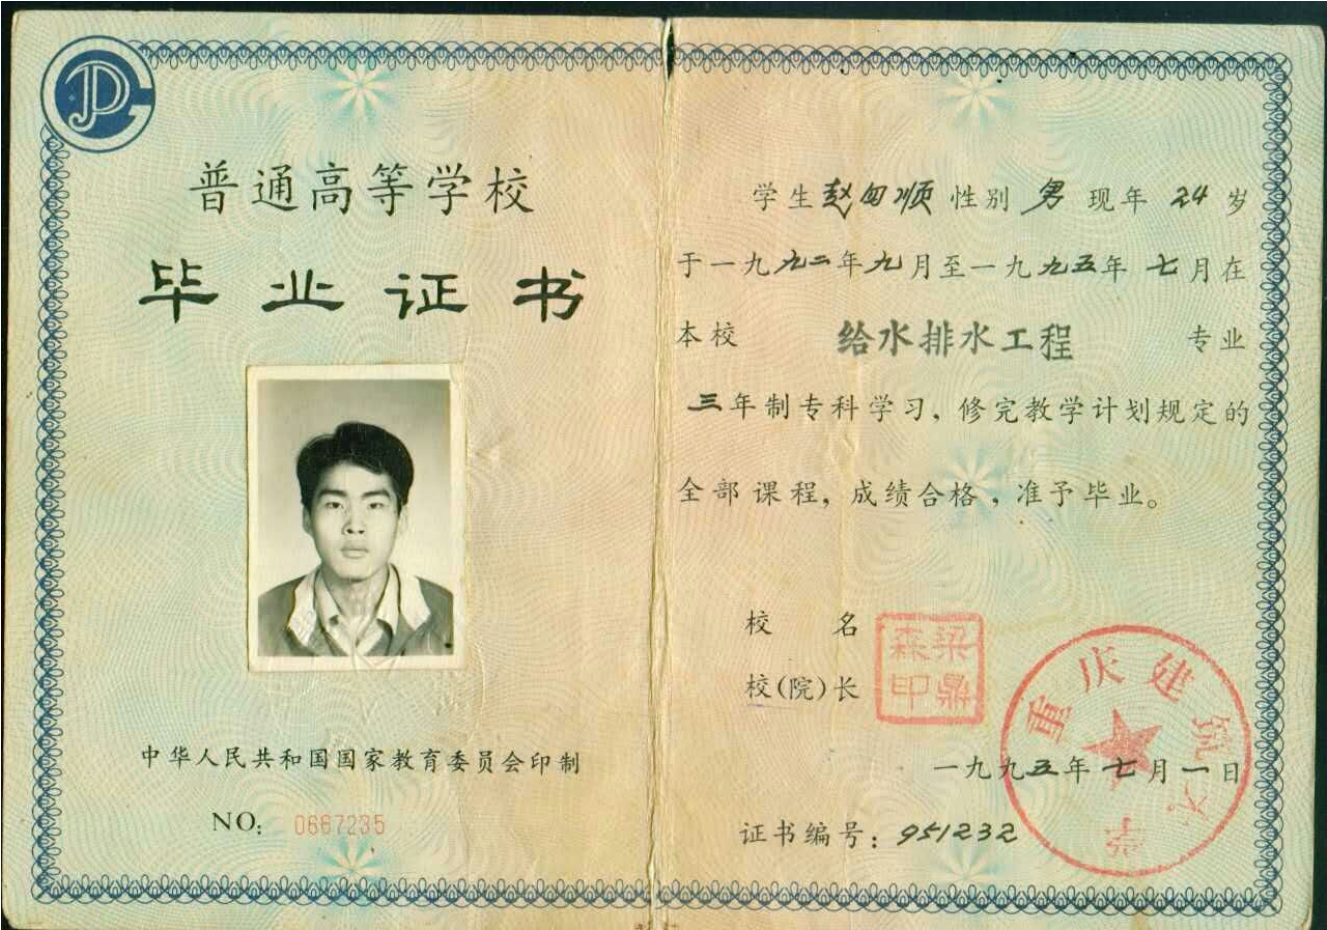 普通高等学校
毕业证书
中华人民共和国国家教育委员会印制
NO: 0667235
学生赵 顺 性别 男 现年 24 岁
于一九九二年九月至一九九五年 七月在
本校 给水排水工程 专业
三年制专科学习，修完教学计划规定的
全部课程，成绩合格，准予毕业。
校 名
校(院)长
梁鼎森印
重庆建筑大学
一九九五年七月一日
证书编号：951232